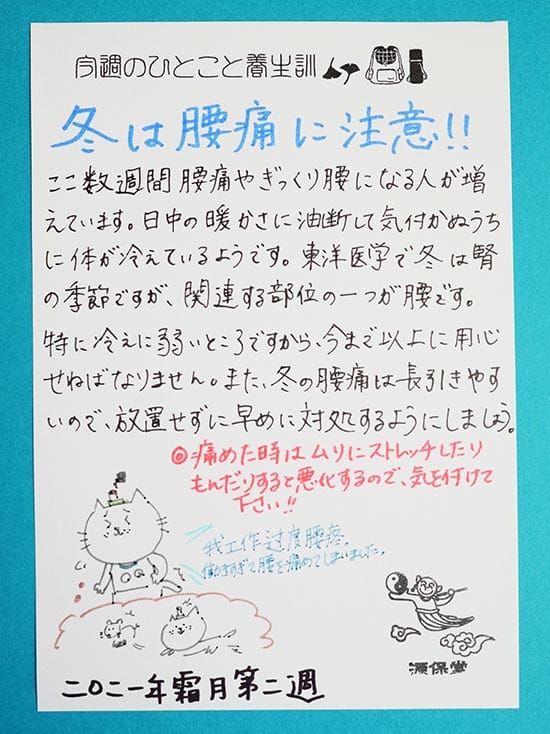 今週のひとこと養生訓
冬は腰痛に注意!!
ここ数週間腰痛やぎっくり腰になる人が増
えています。日中の暖かさに油断して気付かぬうち
に体が冷えているようです。東洋医学で冬は腎
の季節ですが、関連する部位の一つが腰です。
特に冷えに弱いところですから、今まで以上に用心
せねばなりません。また、冬の腰痛は長引きやす
いので、放置せずに早めに対処するようにしましょう。
◎痛めた時はムリにストレッチしたり
もんだりすると悪化するので、気を付けて
下さい!!
我工作过度腰疼。
働きすぎて腰を痛めてしまいました。
源保堂
二〇二一年霜月第二週